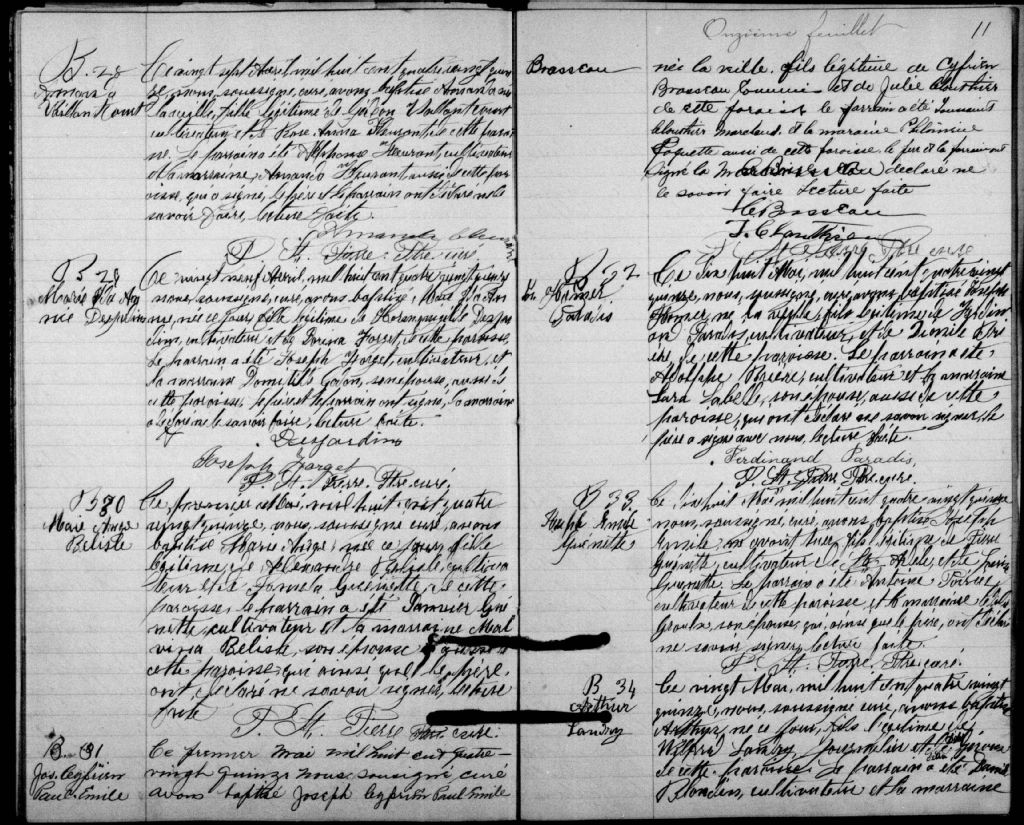 B. 28
Amanda
Vaillancourt
Ce vingt sept Avril mil huit cent quatre vingt quin
ze, nous, soussigné, curé, avons baptisé Amanda née
la veille, fille légitime de Gédéon Vaillancourt
cultivateur et de Rose Anna Fleurant de cette parois
se. Le parrain a été Alphonse Fleurant, cultivateur
et la marraine, Amanda Fleurant aussi de cette par
oisse, qui a signé, le père et le parrain ont déclaré ne le
savoir faire, lecture faite.
Amanda
P. St. Pierre Ptre curé.
B. 28
Marie
nie Desjardins
Ce vingt neuf Avril, mil huit cent quatre vingt quinze
nous, soussigné, curé, avons baptisé, Marie
nie, née ce jour, fille légitime de Desjar
dins, cultivateur et de Forget, de cette paroisse,
Le parrain a été Joseph Forget, cultivateur, et
la marraine son épouse, aussi de
cette paroisse, le père et le parrain ont signé, la marraine
a déclaré ne le savoir faire, lecture faite.
Desjardins
Joseph Forget
P. St. Pierre. Ptre curé.
B 30
Marie Ange
Belisle
Ce premier Mai, mil huit cent quatre
vingt quinze, nous, soussigné curé, avons
baptisé Marie Ange, née ce jour, fille
légitime de Alexandre Belisle, cultiva
teur et de Guénette, de cette
paroisse, le parrain a été Janvier Gué
nette, cultivateur et la marraine Mal
vina Belisle, son épouse aussi de
cette paroisse, qui ainsi que le père
ont déclaré ne savoir signer, lecture
faite
P. St. Pierre Ptre. curé.
B. 31
Jos. Cyprien
Paul Emile
Ce premier mai mil huit cent quatre
vingt quinze nous sousigné curé
avons baptisé Joseph Cyprien Paul Emile
Onzième feuillet
11
Brasseau
né la veille, fils légitime de Cyprien
Brasseau Commis et de Julie Clouthier
de cette paroisse le parrain a été Toussaint
Clouthier marchand, et la maraine Philomine
Paquette aussi de cette paroisse le père et le parrain ont
signé la declaré ne
le savoir faire Lecture faite
C Brasseau
T. Clouthier
P. St. Pierre Ptre curé
B. 32
Homer
Paradis
Ce dix huit Mai, mil huit cent quatre vingt
quinze, nous, soussigné, curé, avons baptisé Joseph
Homer, né la veille, fils légitime de Ferdinan
d Paradis, cultivateur, et de
de cette paroisse. Le parrain a été
Adolphe cultivateur et la marraine
Labelle, son épouse, aussi de cette
paroisse, qui ont déclaré ne savoir signer, le
père a signé avec nous, lecture faite.
Ferdinand Paradis,
P. St. Pierre Ptre curé.
B 33.
Joseph Emile
Guénette
Ce dix huit Mai mil huit cent quatre vingt quinze
nous, soussigné, curé, avons baptisé Joseph
Emile, né avant hier, fils légitime de Pierre
Guénette, cultivateur de Ste Adèle, et de
Guénette. Le parrain a été Antoine
cultivateur de cette paroisse, et la marraine
Giroux, son épouse, qui, ainsi que le père, ont déclaré
ne savoir signer, lecture faite.
P. St. Pierre. Ptre. curé.
B 34
Arthur
Landry
Ce vingt Mai, mil huit cent quatre vingt
quinze, nous, soussigné, curé, avons baptisé
Arthur, né ce jour, fils légitime de
Wilfrid Landry, journalier et de
de cette paroisse. Le parrain a été
cultivateur et la marraine